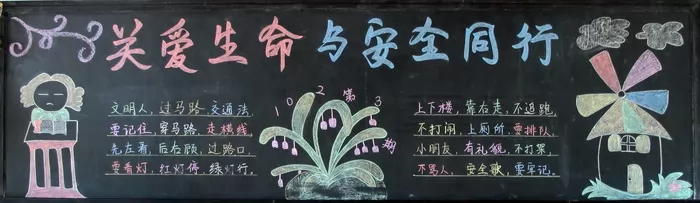 关爱生命与安全同行
文明人，过马路，交通法，
要记住，穿马路，走横线，
先左看，后右顾，过路口，
要看灯，红灯停，绿灯行。
102第3期
上下楼，靠右走，不追跑，
不打闹，上厕所，要排队，
小朋友，有礼貌，不打架，
不骂人，安全歌，要牢记。